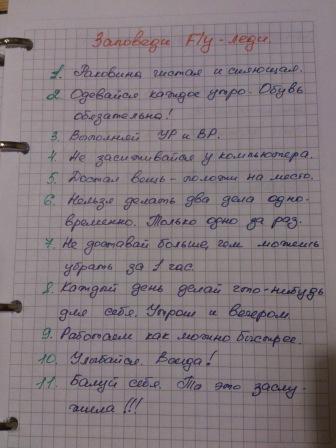 Заповеди Fly-леди.
1. Раковина чистая и сияющая.
2. Одевайся каждое утро. Обувь
обязательно!
3. Выполняй УР и ВР.
4. Не засиживайся у компьютера.
5. Достал вещь - положи на место.
6. Нельзя делать два дела одно-
временно. Только одно за раз.
7. Не доставай больше, чем можешь
убрать за 1 час.
8. Каждый день делай что-нибудь
для себя. Утром и вечером
9. Работаем как можно быстрее.
10. Улыбайся. Всегда!
11. Балуй себя. Ты это заслу-
жила!!!